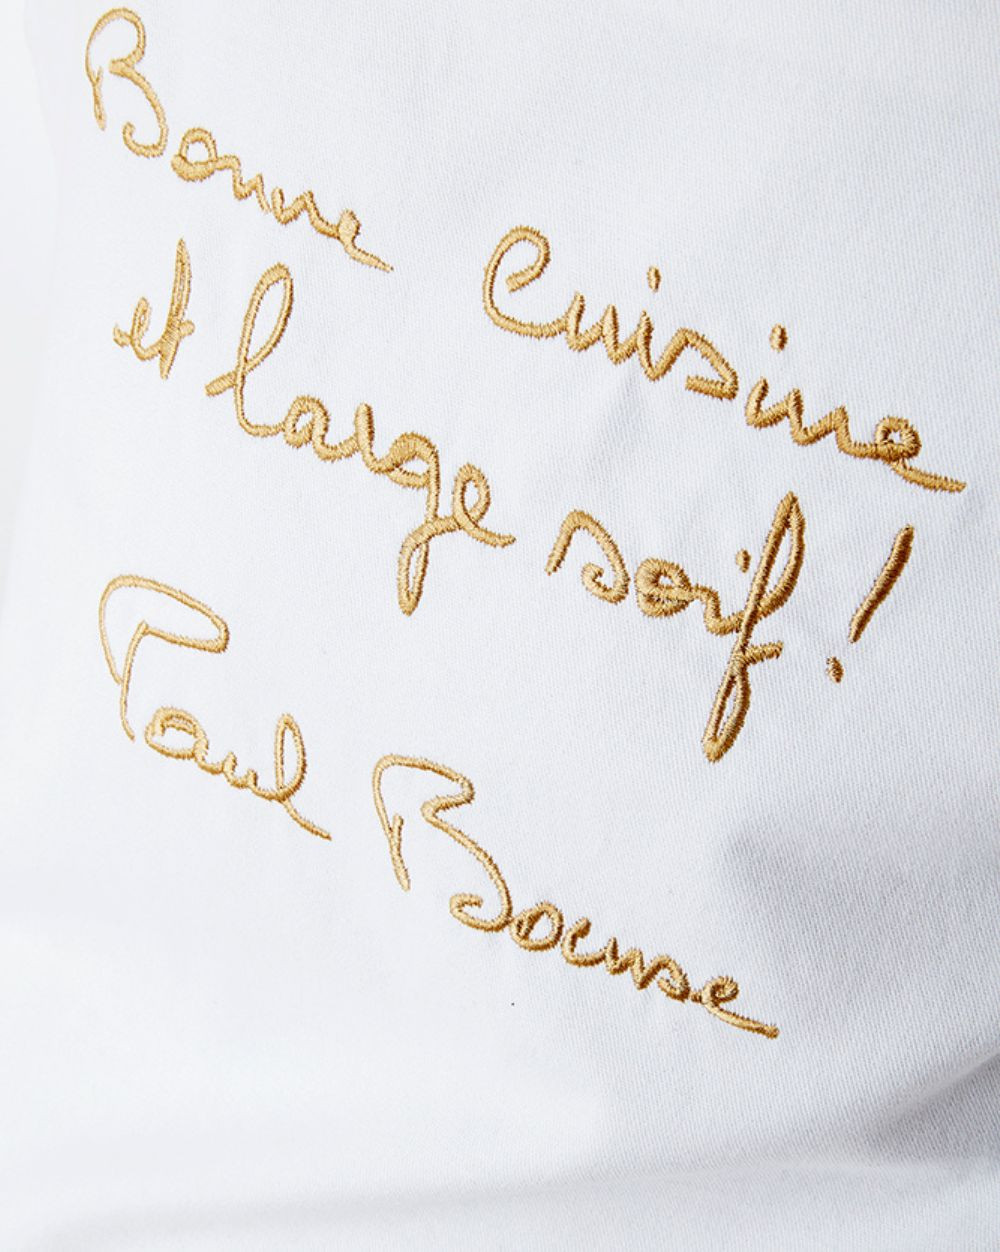 Bonne Cuisine
et large soif !
Paul Bocuse